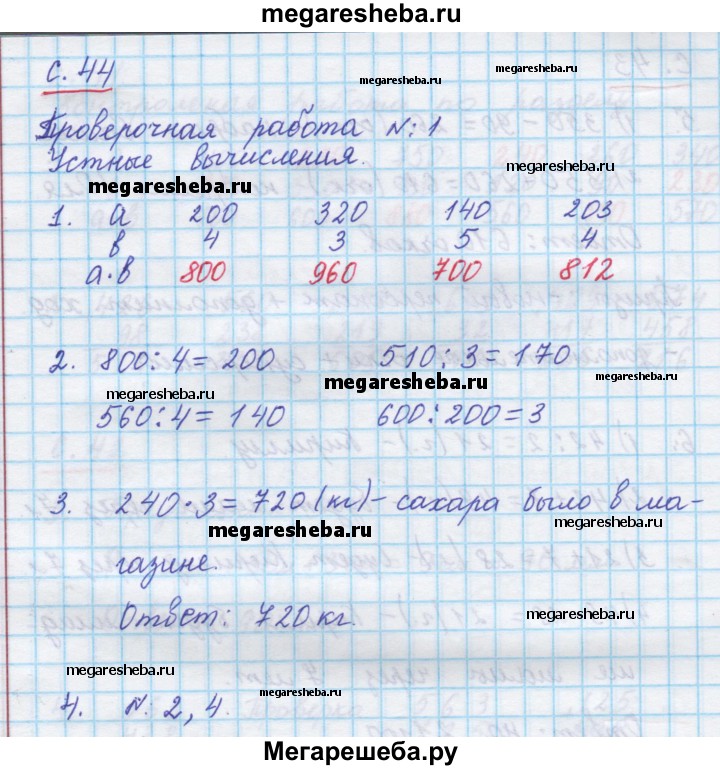 megaresheba.ru
с. 44
megaresheba.ru
megaresheba.ru
Проверочная работа №: 1
Устные вычисления.
megaresheba.ru
megaresheba.ru
1. а 200 320 140 203
в 4 3 5 4
а·в 800 960 700 812
2. 800:4=200 510:3=170
megaresheba.ru
megaresheba.ru
megaresheba.ru
560:4=140 600:200=3
3. 240·3=720(кг)-сахара было в ма-
megaresheba.ru
megaresheba.ru
газине.
Ответ: 720кг.
megaresheba.ru
megaresheba.ru
megaresheba.ru
4. №: 2, 4.
Мегарешеба.ру